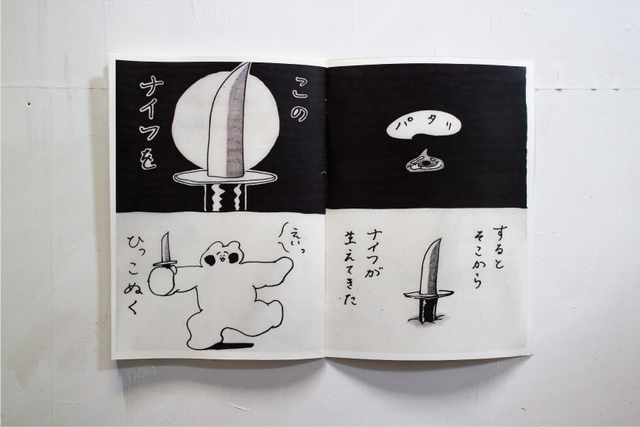 パタリ
すると
そこから
ナイフが
生えてきた
この
ナイフを
えいっ
ひっこぬく